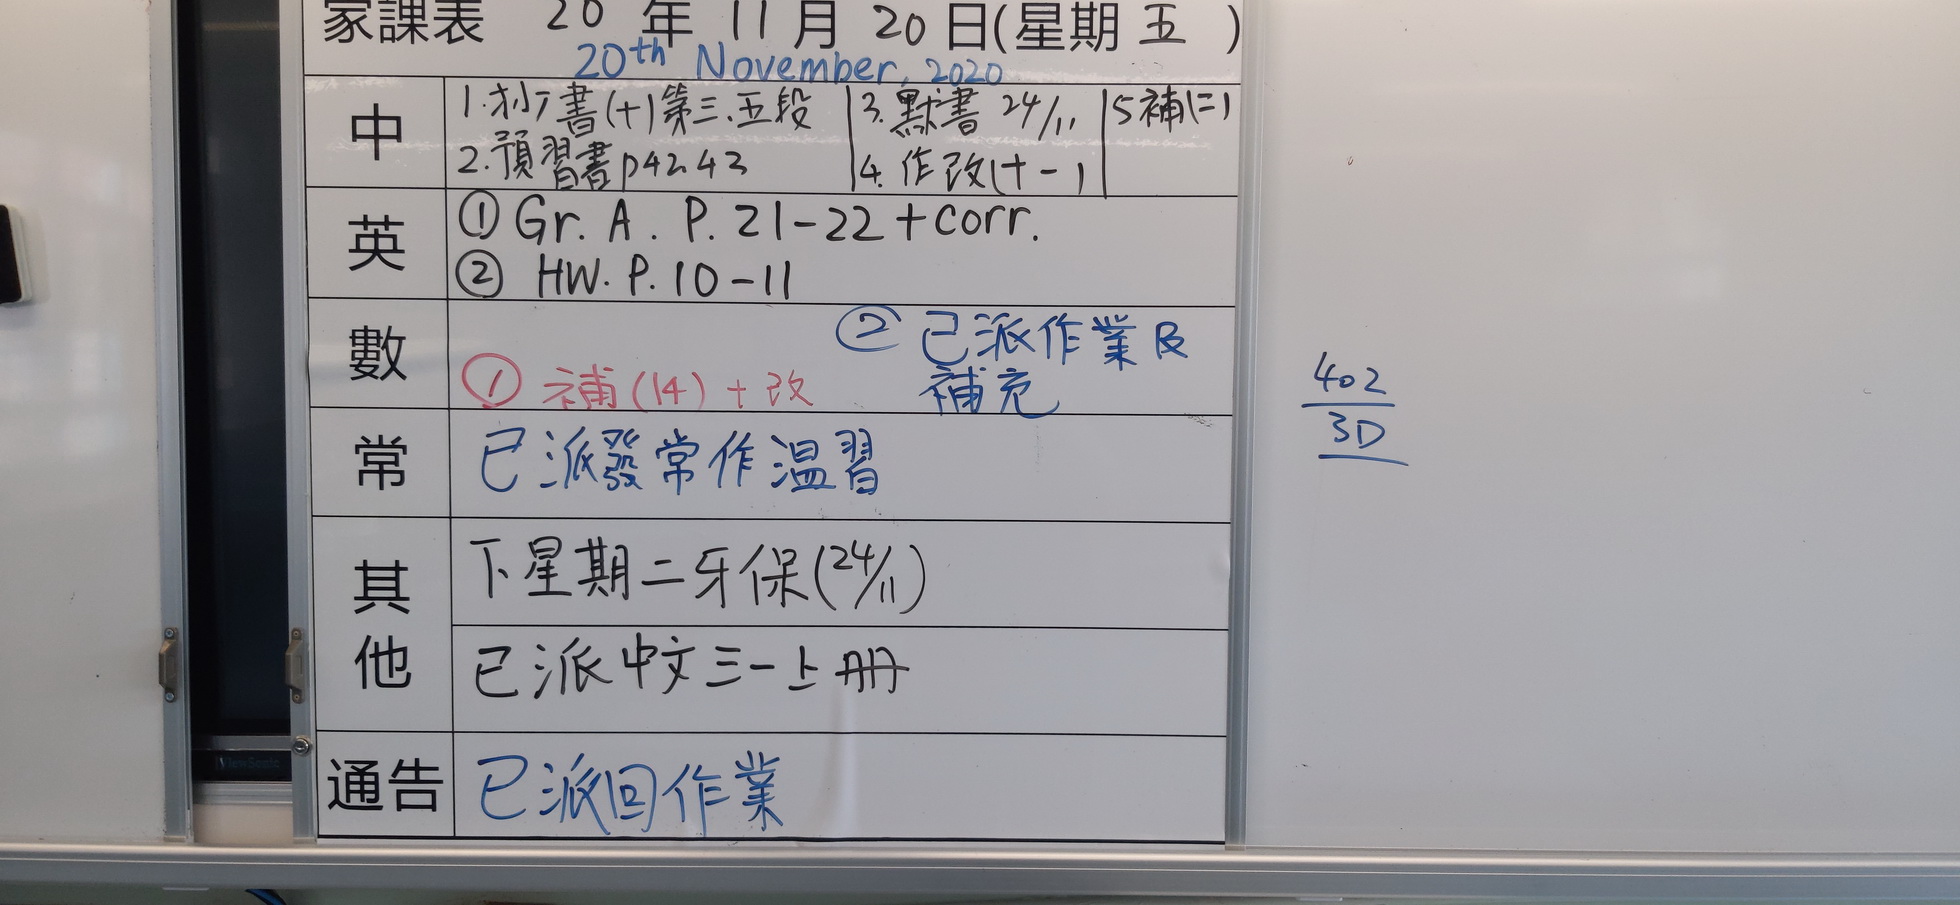 家課表 20 年 11 月 20 日(星期 五 )
20th November, 2020
中
1. 抄書(十)第三、五段
2. 預習書p42 43
3. 默書 24/11
4. 作改(十一)
5 補(二)
英
① Gr. A. P. 21-22 + corr.
② HW. P. 10-11
數
① 補(14) + 改
② 已派作業及
補充
常
已派發常作溫習
其他
下星期二牙保(24/11)
已派中文三一上冊
通告
已派回作業
402
3D
ViewSonic